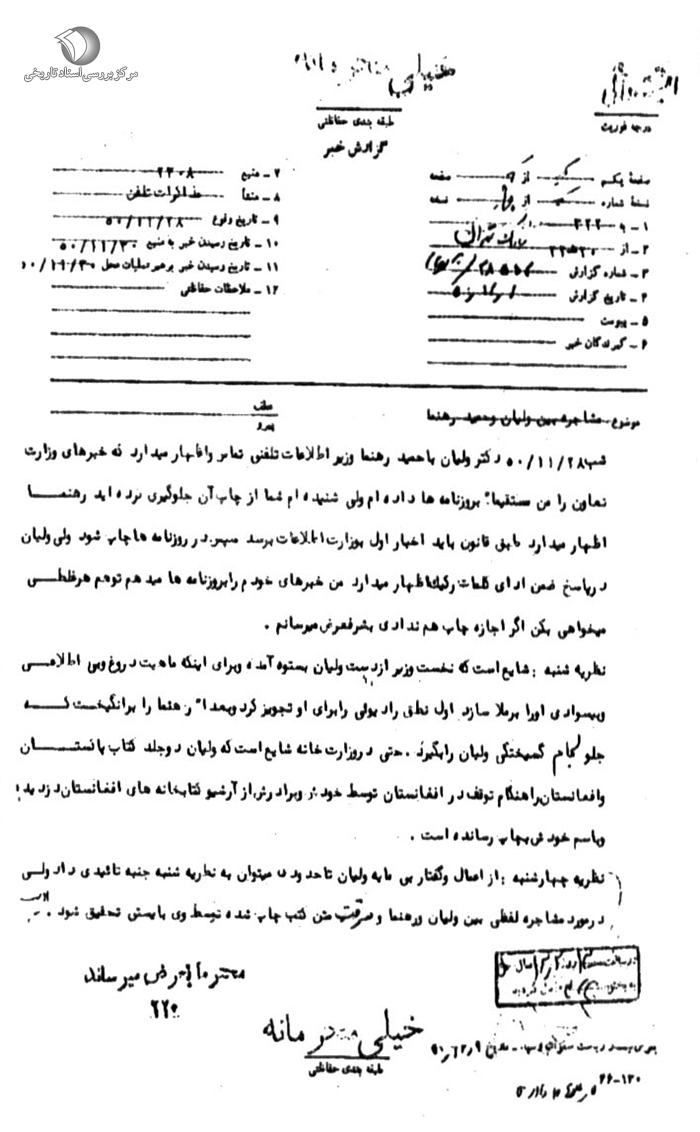 مرکز بررسی اسناد تاریخی
خیلی محرمانه
طبقه بندی حفاظتی
درجه فوریت
گزارش خبر
صفحهٔ یکم از صفحه
نسخهٔ شماره از نسخه
۱ - به ۳۲۲
۲ - از
۳ - شماره گزارش
۴ - تاریخ گزارش
۵ - پیوست
۶ - گیرندگان خبر
۷ - منبع ۲۳۰۸
۸ - منشأ مذاکرات تلفن
۹ - تاریخ وقوع ۵۰/۱۱/۲۸
۱۰ - تاریخ رسیدن خبر به منبع ۵۰/۱۱/۳۰
۱۱ - تاریخ رسیدن خبر برهبر عملیات محل ۵۰/۱۱/۳۰
۱۲ - ملاحظات حفاظتی
موضوع: مشاجره بین ولیان وحمید رهنما
عطف
پیرو
شب ۵۰/۱۱/۲۸ دکتر ولیان با حمید رهنما وزیر اطلاعات تلفنی تماس واظهار میدارد که خبرهای وزارت
تعاون را من مستقیماً بروزنامه ها داده ام ولی شنیده ام شما از چاپ آن جلوگیری کرده اید رهنمـــا
اظهار میدارد طبق قانون باید اخبار اول بوزارت اطلاعات برسد سپس در روزنامه ها چاپ شود ولی ولیان
درپاسخ ضمن ادای کلمات رکیک اظهار میدارد من خبرهای خودم را بروزنامه ها میدهم توهم هرغلطـــی
میخواهی بکن اگر اجازه چاپ هم ندادی بشرفعرض میرسانم .
نظریه شنبه : شایع است که نخست وزیر ازدست ولیان بستوه آمده وبرای اینکه ماهیت دروغ وبی اطلاعـــی
وبیسوادی اورا برملا سازد اول نطق رادیوئی رابرای او تجویز کرد وبعداً رهنما را برانگیخت کـــه
جلو لجام گسیختگی ولیان رابگیرد . حتی دروزارت خانه شایع است که ولیان دوجلد کتاب پاکستـــان
وافغانستان راهنگام توقف در افغانستان توسط خودش وبرادرش از آرشیو کتابخانه های افغانستان دزدیده
وباسم خودش بچاپ رسانده است .
نظریه چهارشنبه : از اعمال وگفتار بی مایه ولیان تاحدودی میتوان به نظریه شنبه جنبه تائیدی داد ولـــی
درمورد مشاجره لفظی بین ولیان ورهنما و سرقت متن کتب چاپ شده توسط وی بایستی تحقیق شود .
محترماً بعرض میرساند
۲۲۰
خیلی محرمانه
طبقه بندی حفاظتی